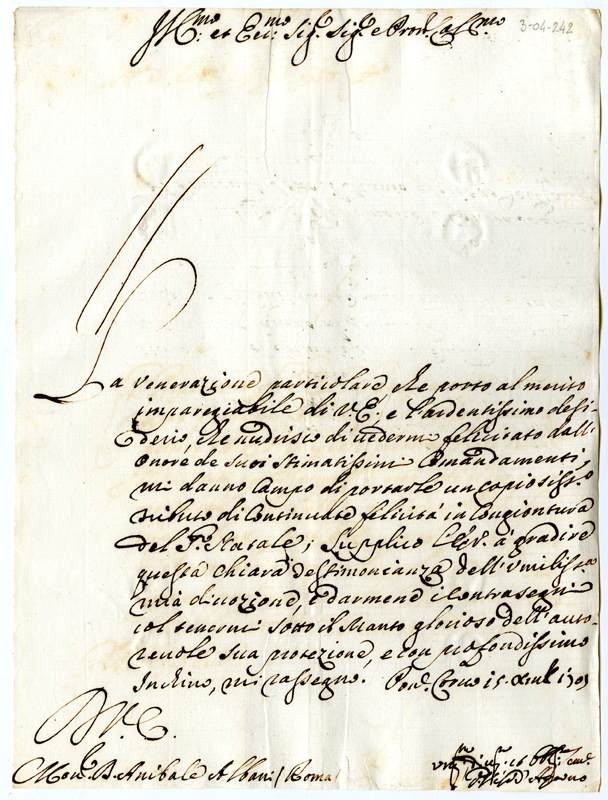 Ill.mo et Ecc.mo Sig.r Sig.r e Pron. Col.mo
3-04-242
La venerazione particolare che porto al merito
impareggiabile di V.E. e l'ardentissimo desi-
derio, che nudrisco di uedermi felicitato dall'
onore de suoi stimatissimi Comandamenti,
mi danno Campo di portarle un copiosiss.o
tributo di Continuate felicità in Congiontura
del S.o Natale; supplico l'E.V. à gradire
questa chiara testimonianza dell'umiliss.a
mia diuozione, e darmene i Contrasegni
col tenermi sotto il Manto glorioso dell'auto-
reuole sua protezione, e con profondissimo
Inchino, mi rassegno.
D. V. E.
Mon.r D. Anibale Albani / Roma